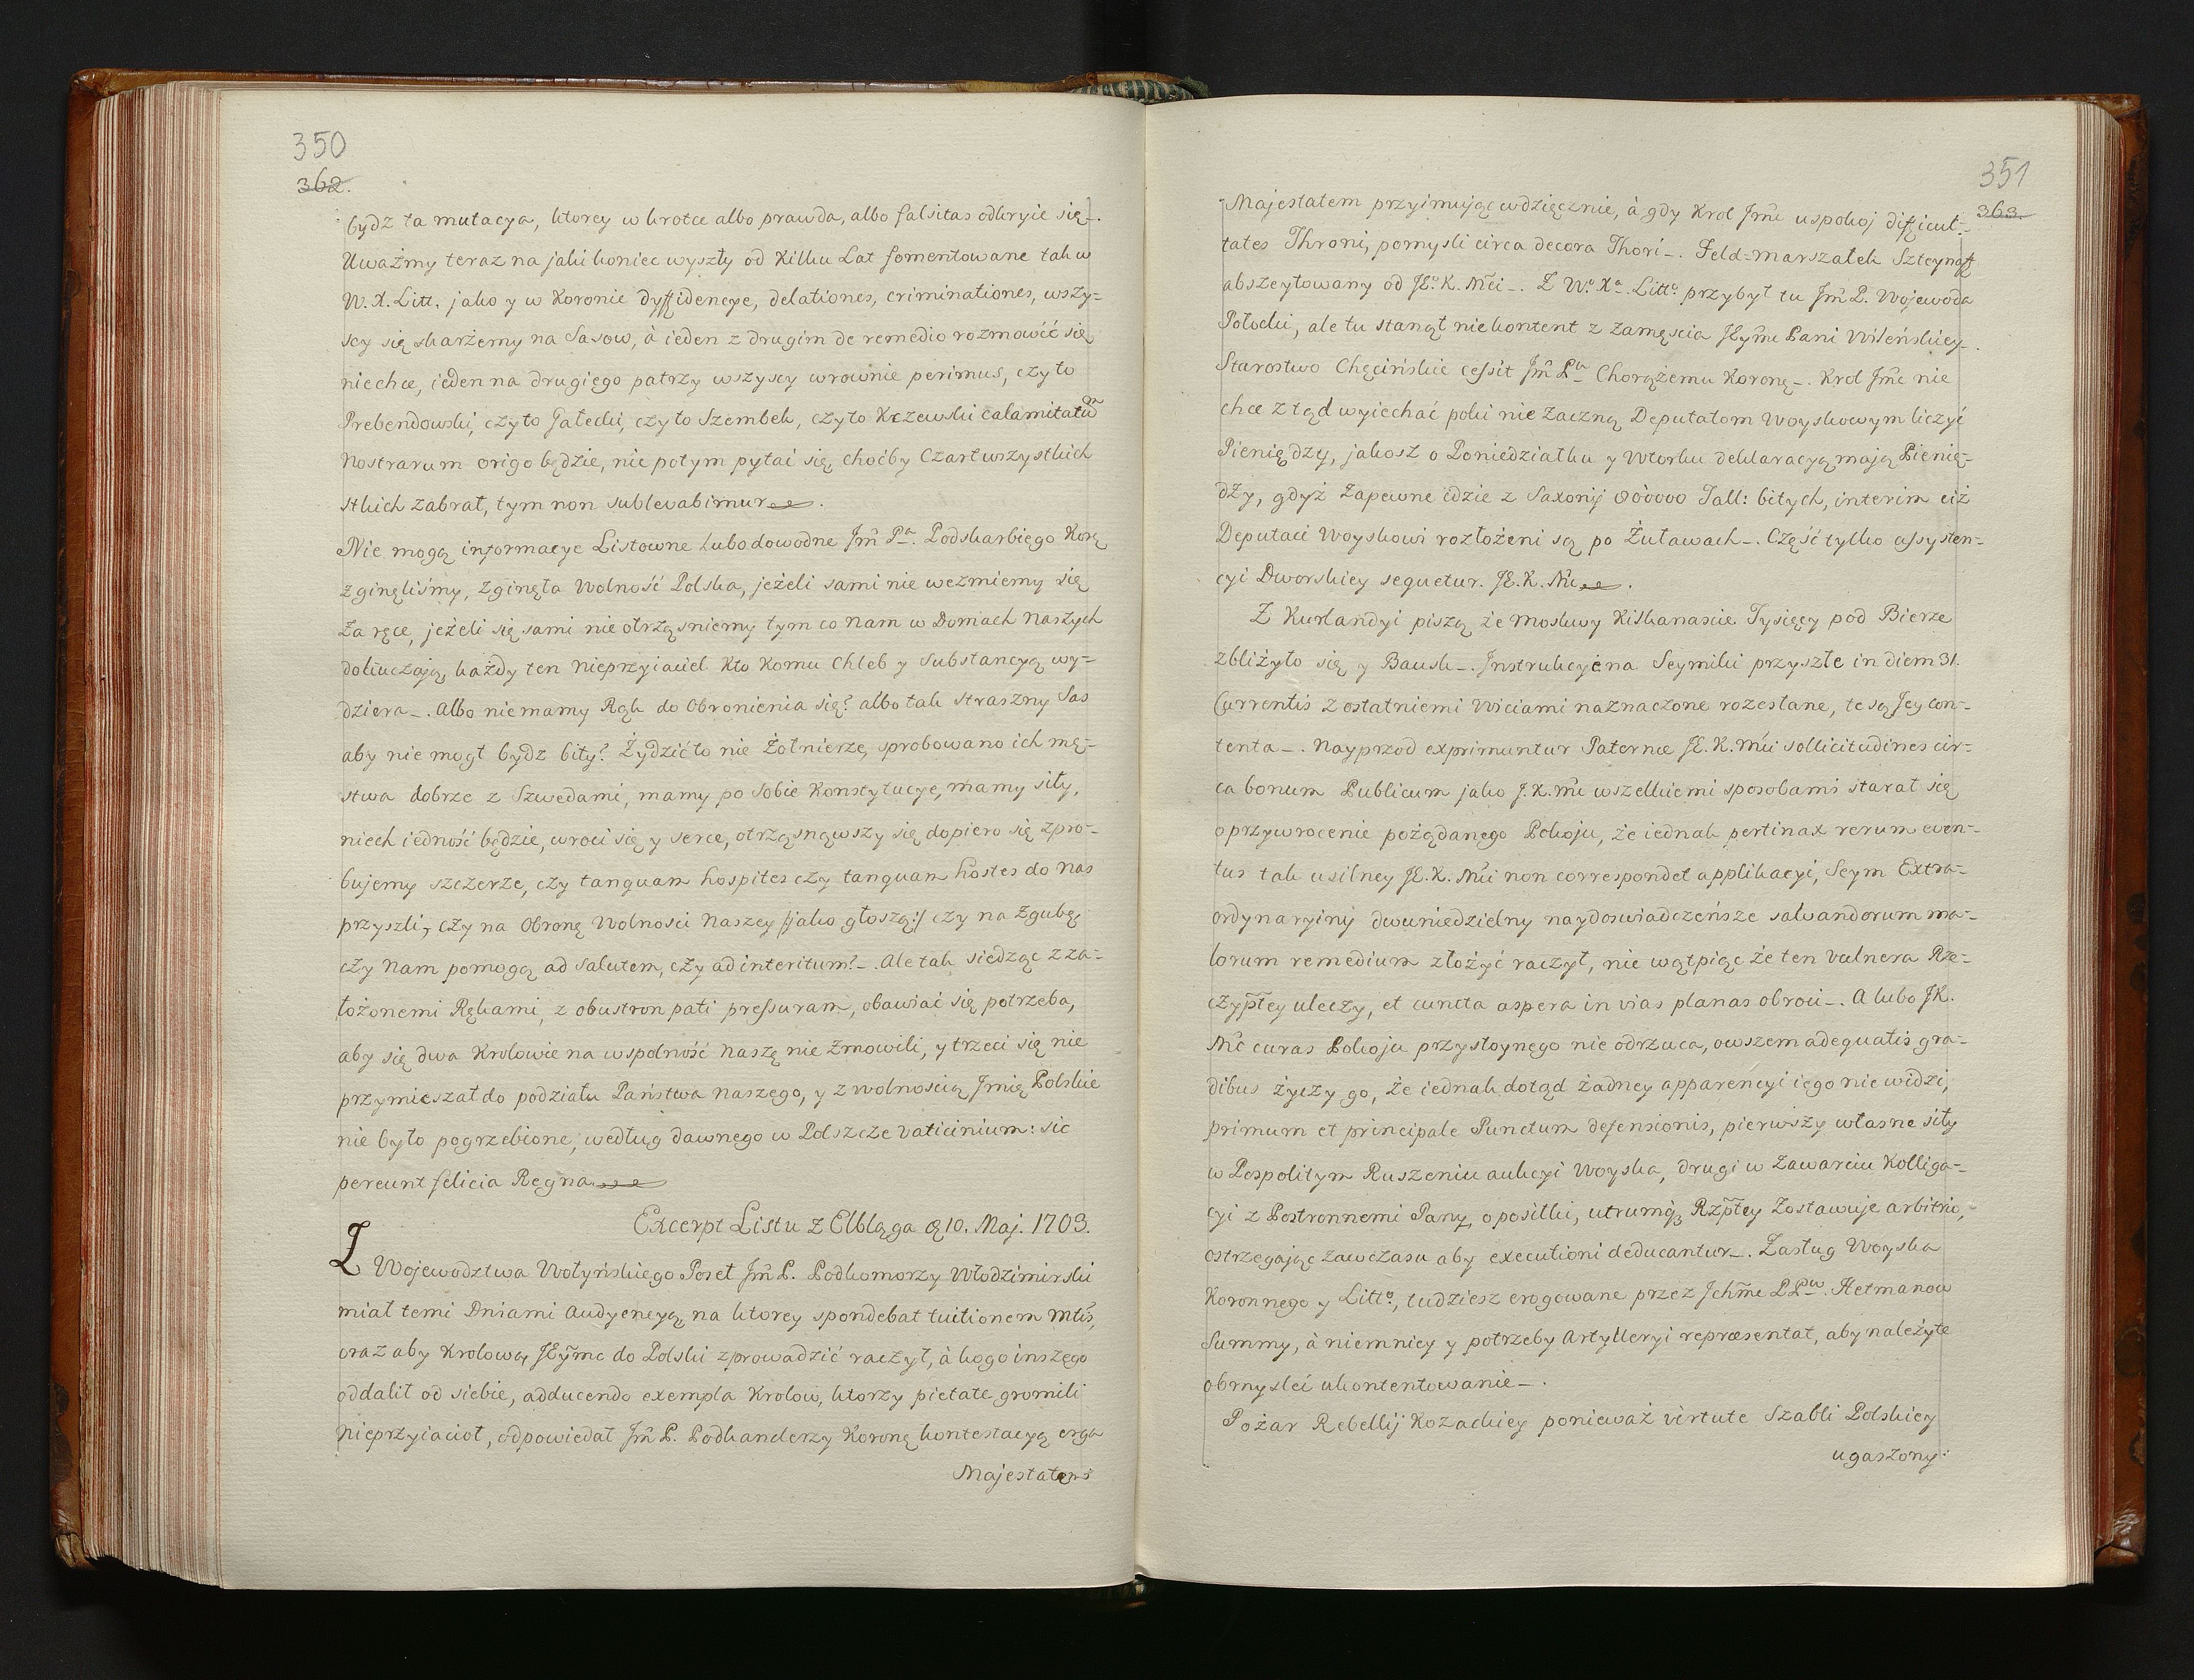 350
362.
bydz ta mutacya, ktorey w krotce albo prawda, albo falsitas odkryie się_.
Uważmy teraz na jaki koniec wyszły od Kilku Lat fomentowane tak w
W. X. Litt. jako y w Koronie dyffidencye, delationes, criminationes, wszy=
scy się skarżemy na Sasow, à ieden z drugim de remedio rozmowić się
niechce, ieden na drugiego patrzy wszyscy wrownie perimus, czy to
Prebendowski, czy to Gałecki, czy to Szembek, czy to Kczewski calamitatum
Nostrarum origo będzie, nie potym pytai się, choćby Czart wszystkich
stkich zabrał, tym non sublevabimur.
Nie mogą informacye Listowne lubo dowodne Jm̃ Pa. Podskarbiego Korą
zginęliśmy, zginęła Wolność Polska, jeżeli sami nie weźmiemy się
za ręce, jeżeli się sami nie otrząsniemy tym co nam w Domach naszych
dokuczają, każdy ten nieprzyiaciel kto komu Chleb y Substancyą wy=
dziera_. Albo niemamy Rąk do Obronienia się? albo tak straszny Sas
aby nie mogł bydz bity? Żydzić to nie Żołnierze, sprobowano ich mę=
stwa dobrze z Szwedami, mamy po sobie Konstytucye, mamy siły,
niech iedność będzie, wroci się y serce, otrząsnąwszy się dopiero się zpro=
bujemy szczerze, czy tanquam hospites czy tanquam hostes do nas
przyszli, czy na Obronę Wolności Naszey /:jako głoszą:/ czy na zgubę
czy Nam pomogą ad Salutem, czy ad interitum?_. Ale tak siedząc z za=
łożonemi Rękami, z obustron pati pressuram, obawiać się potrzeba,
aby się dwa Krolowie na wspolność Naszę nie zmowili, y trzeci się nie
przymieszał do podziału Państwa Naszego, y z wolnością Jmię Polskie
nie było pogrzebione, według dawnego w Polszcze vaticinium: sic
pereunt felicia Regna
Excerpt Listu z Elbląga d. 10. Maj. 1703.
Z Wojewodztwa Wołyńskiego Poseł Jm̃ P. Podkomorzy Włodzimirski
miał temi Dniami Audyencyą, na ktorey spondebat tuitionem Mtis,
oraz aby Krolowę JEỹmc do Polski zprowadzić raczył, à kogo inszego
oddalił od siebie, adducendo exempla Krolow, ktorzy pietate gromili
nieprzyiacioł, odpowiedał Jm̃ P. Podkanclerzy Koroną kontestacyą erga
Majestatem
351
363.
Majestatem przyimując wdzięcznie, à gdy Krol Jm̃c uspokoj difficul=
tates Throni, pomysli circa decora Thori_. Feld=marszałek Szteynoff
abszeytowany od JE.o K. Mc̃i_. Z W.o Xa. Litto. przybył tu Jm̃ P. Wojewoda
Połocki, ale tu stanął niekontent z zamęscia JEỹmc Pani Wileńskiey_.
Starostwo Chęcińskie cessit Jm̃ Pu Chorążemu Koroną_. Krol Jm̃c nie
chce z tąd wyiechać poki nie zaczną Deputatom Woyskowym liczyć
Pieniędzy, jakosz o Poniedziałku y Wtorku deklaracyą mają Pienię=
dzy, gdyż zapewne idzie z Saxonij 800000 Tall: bitych, interim ciż
Deputaci Woyskowi rozłożeni są po Żuławach_. Część tylko assysten=
cyi Dworskiey sequetur. JE. K. Mc.
Z Kurlandyi piszą że Moskwy Kilkanaście Tysięcy pod Bierze
zbliżyło się y Bausk_. Instrukcye na Seymiki przyszłe in diem 31.
Currentis z ostatniemi Wiciami naznaczone rozesłane, te są Jey con=
tenta_. Nayprzod exprimuntur Paternæ JE. K. Mci sollicitudines cir=
ca bonum Publicum jako J. K. Mc wszelkiemi sposobami starał się
o przywrocenie pożądanego Pokoju, że iednak pertinax rerum even=
tus tak usilney JE. K. Mci non correspondet applikacyi, Seym Extra=
ordynaryiny dwuniedzielny naydoswiadczeńsze salvandorum ma=
lorum remedium złożyć raczył, nie wątpiąc że ten vulnera Rze=
czypt̃ey uleczy, et cuncta aspera in vias planas obroci_. A lubo JK.
Mc curas Pokoju przystoynego nie odrzuca, owszem adequatis gra=
dibus życzy go, że iednak dotąd żadney apparencyi iego nie widzi,
primum et principale Punctum defensionis, pierwszy własne siły
w Pospolitym Ruszeniu aukcyi Woyska, drugi w zawarciu Kolliga=
cyi z Postronnemi Pany, o posiłki, utrumq; Rzpt̃ey zostawuje arbitrio,
ostrzegając zawczasu aby executioni deducantur_. Zasług Woyska
Koronnego y Litto., tudziesz erogowane przez Jchm̃c PPow. Hetmanow
Summy, à niemniey y potrzeby Artylleryi repræsentat, aby należyte
obmyslci ukontentowanie_.
Pożar Rebellij Kozackiey ponieważ virtute Szabli Polskiey
ugaszony: